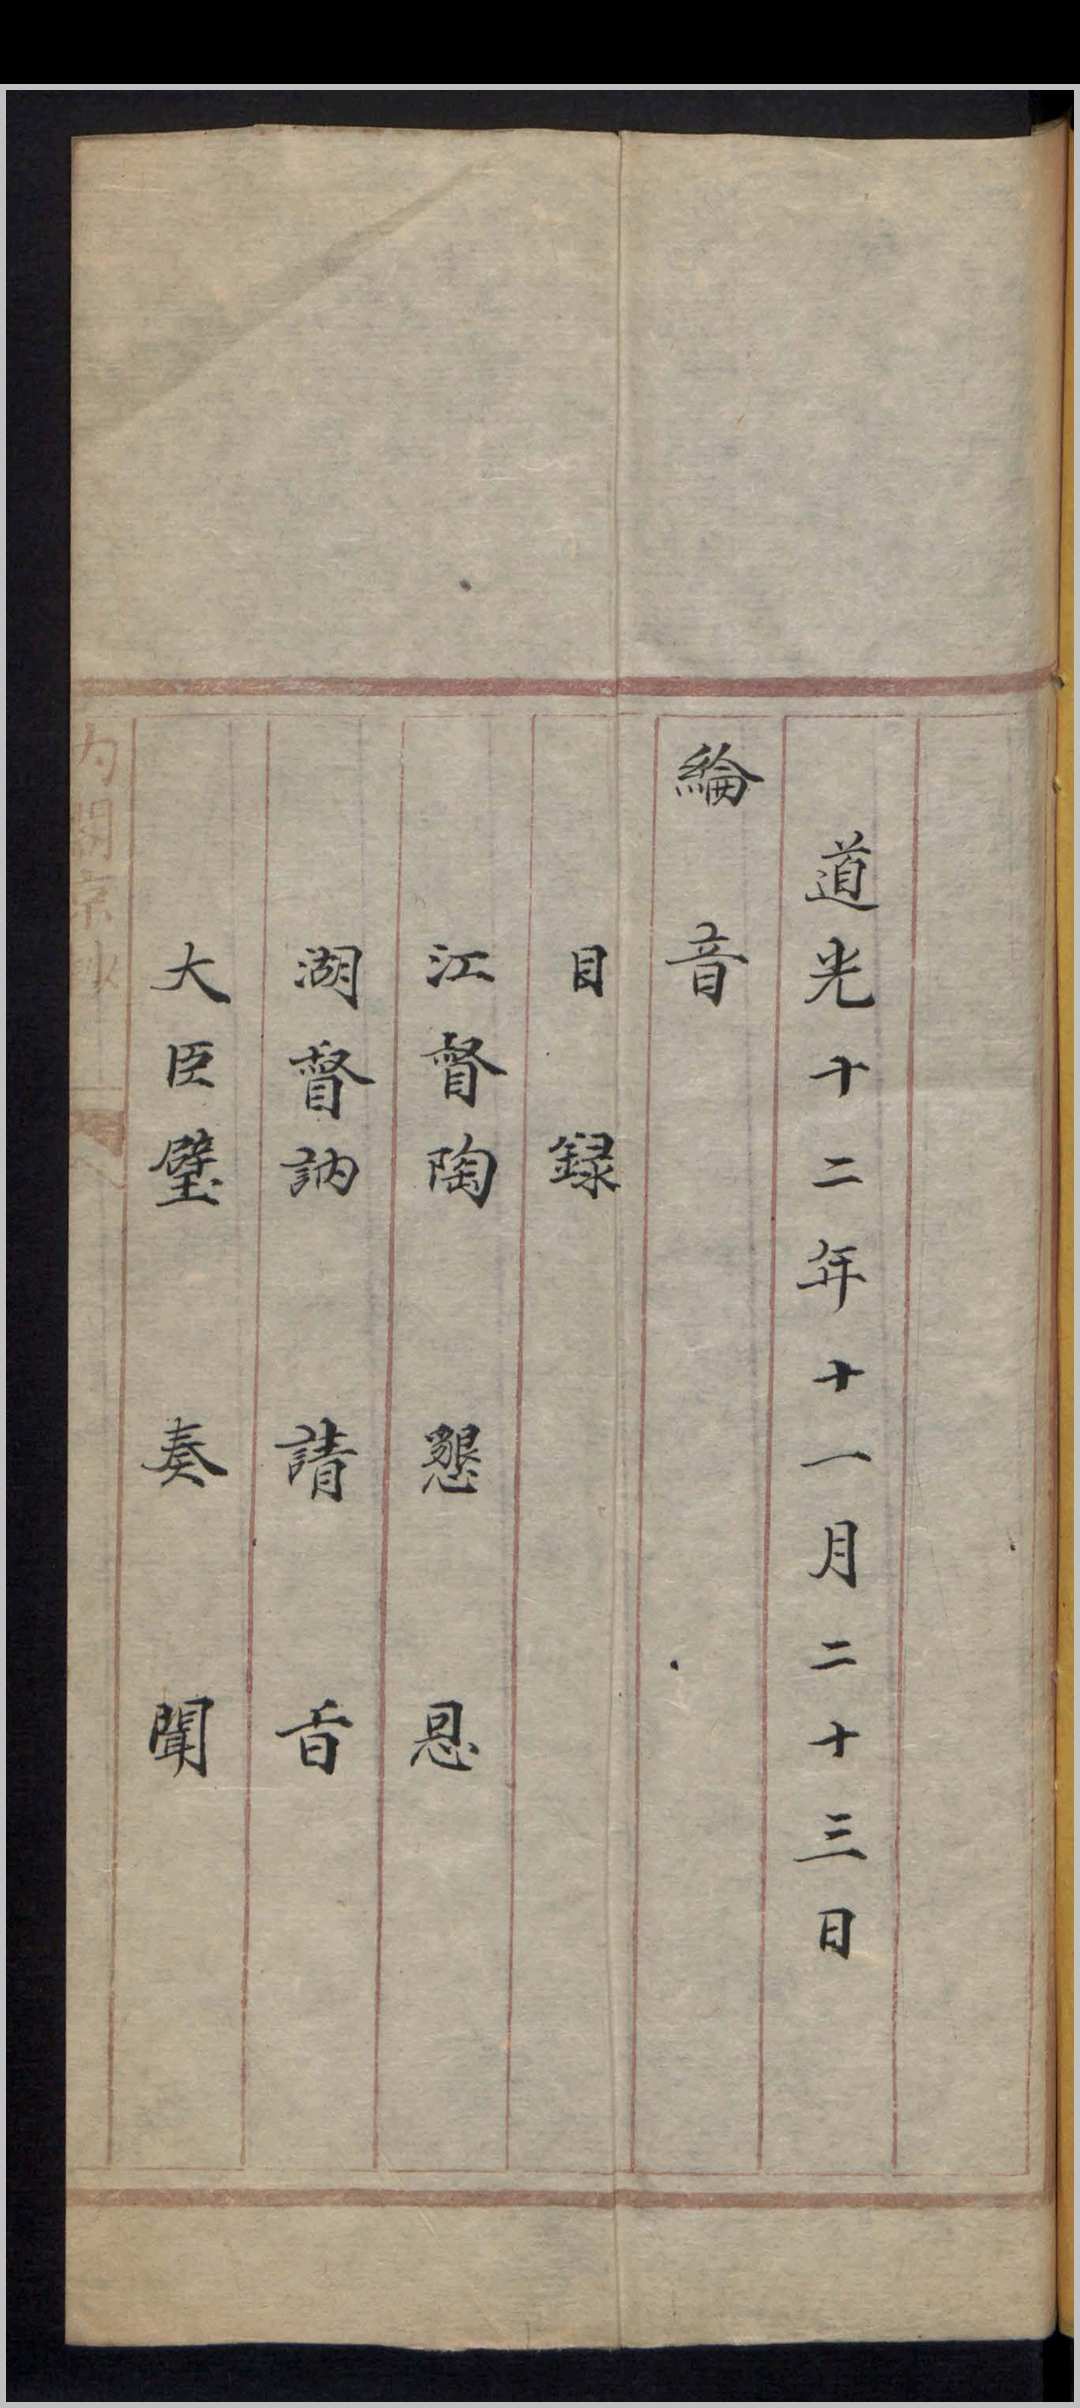 道光十二年十一月二十三日
綸音
目録
江督陶 懇 恩
湖督訥 請 旨
大臣璧 奏 聞
内閣京抄